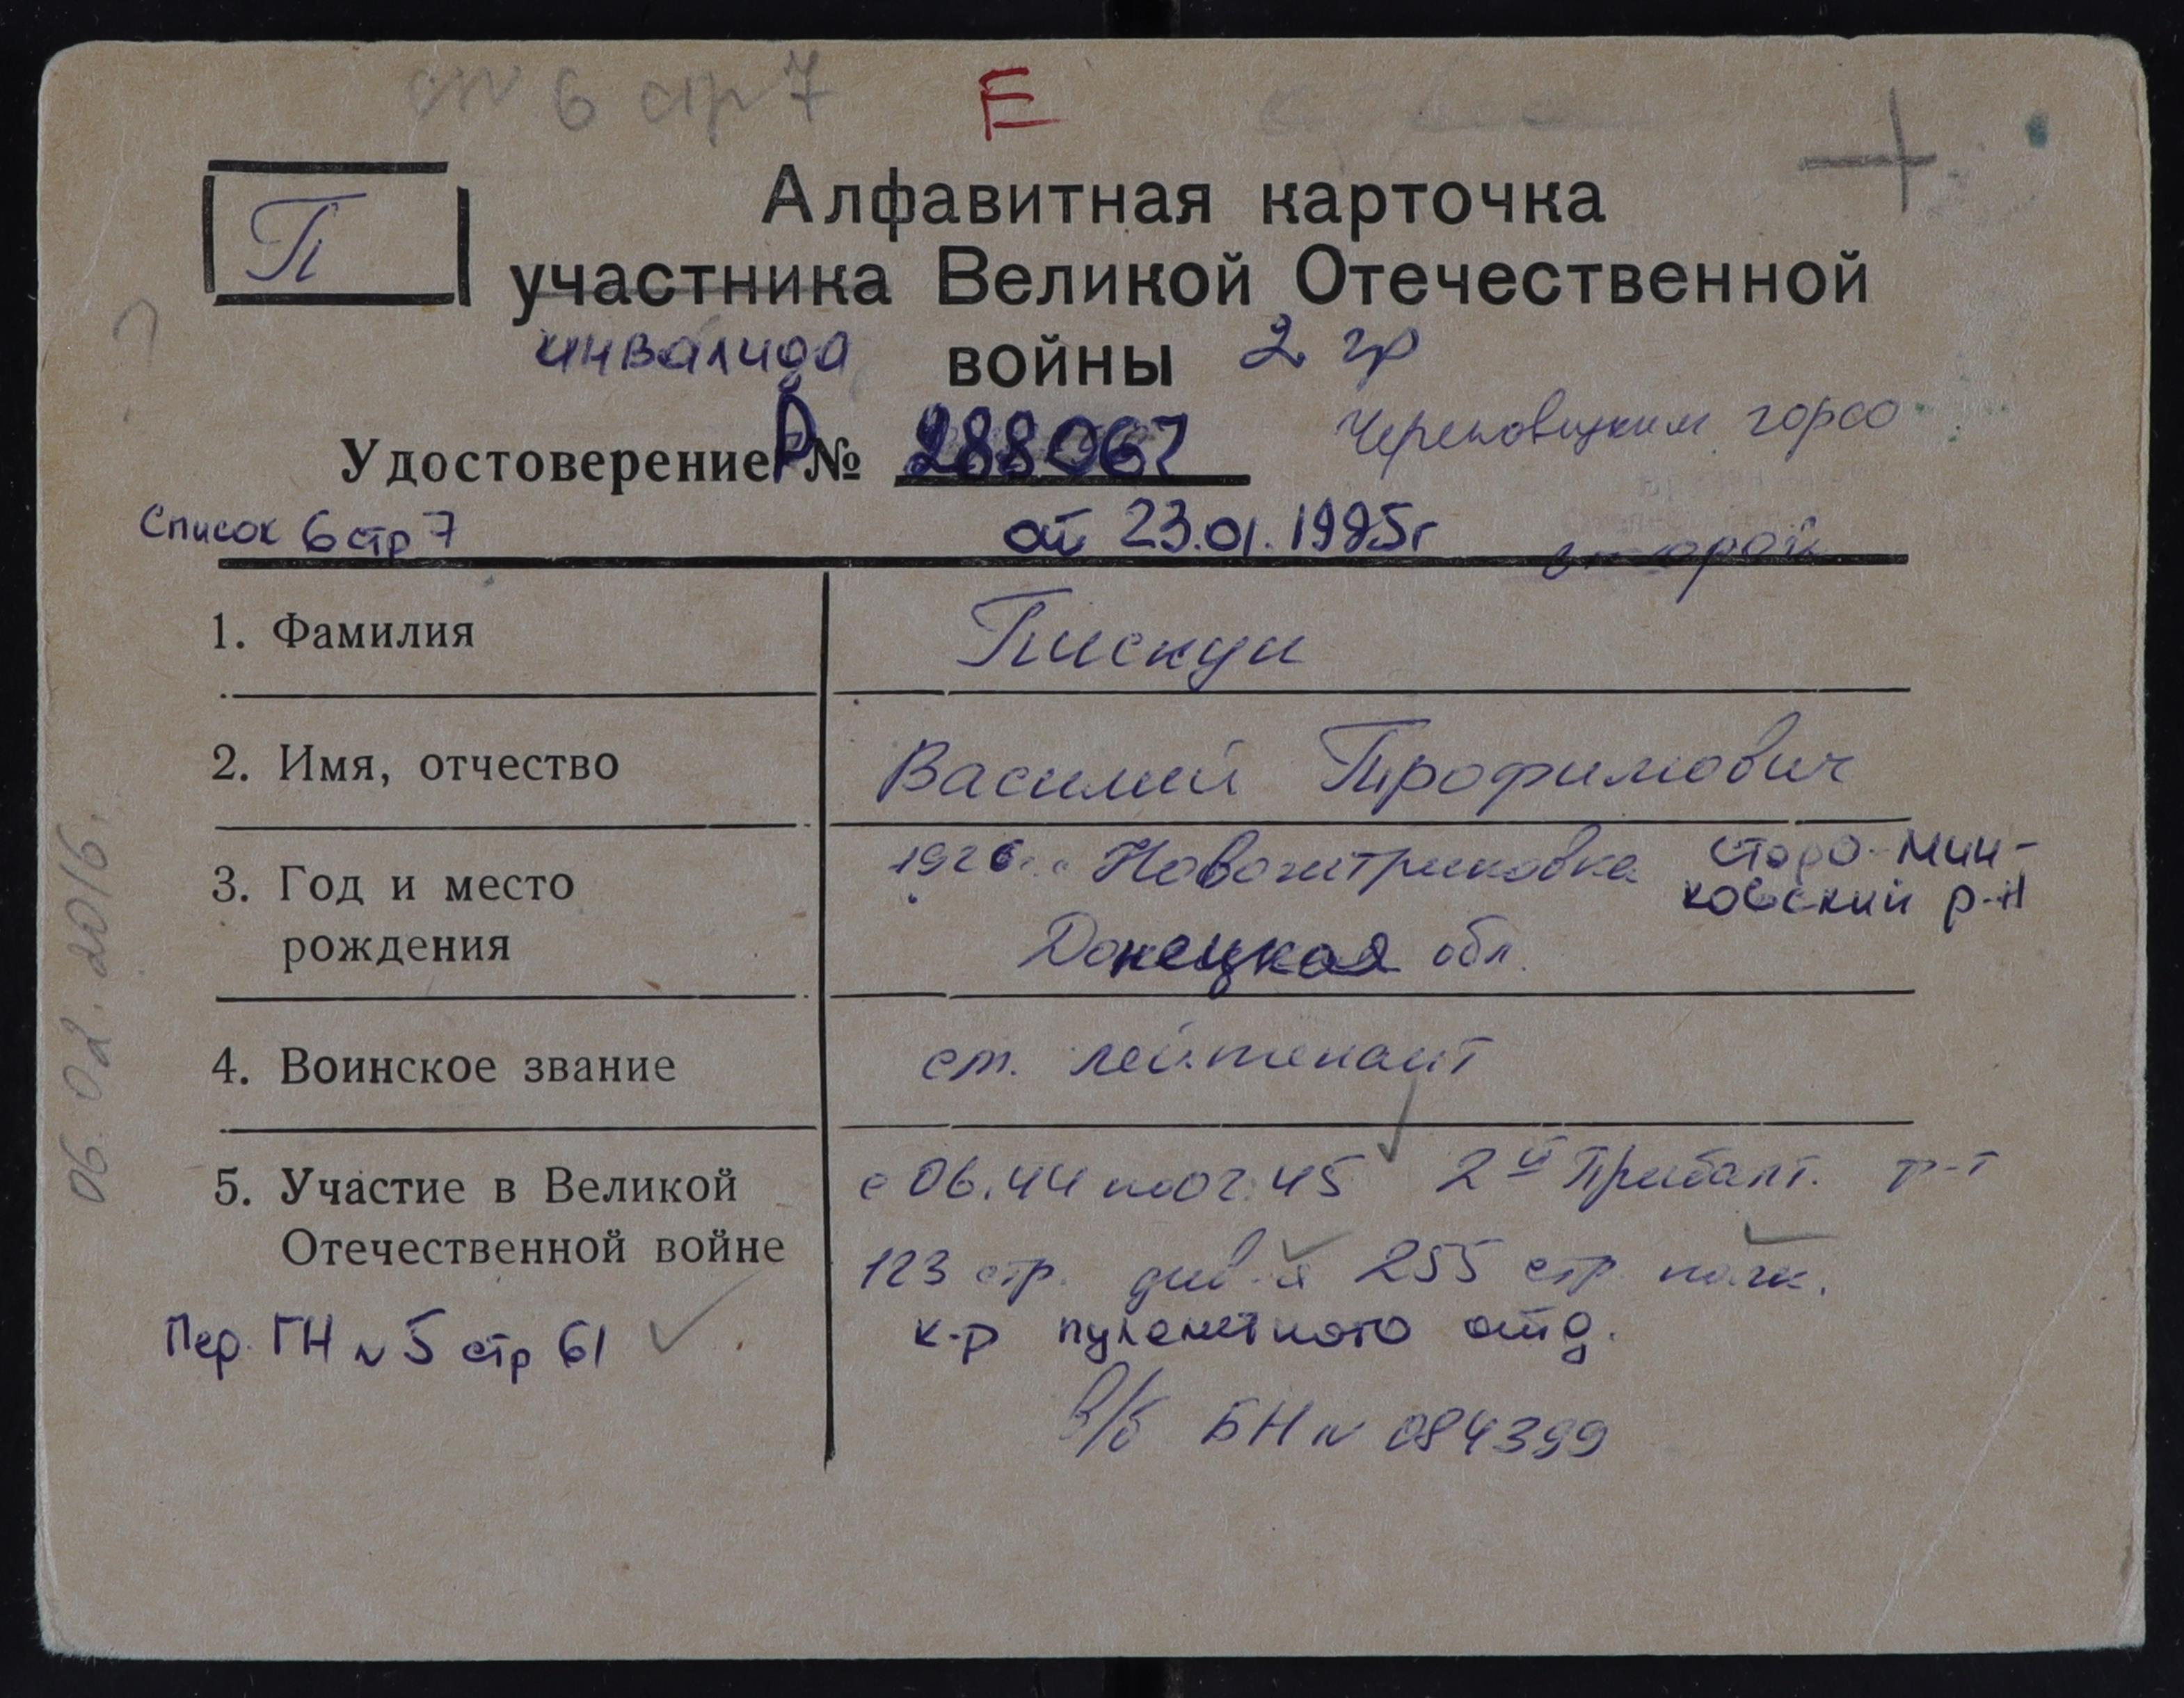 сп 6 стр 7
Е
П
Алфавитная карточка
участника Великой Отечественной
инвалида войны 2 гр
Удостоверение Р № 288067
Череповецким горсо
Список 6 стр 7
от 23.01.1995г
второй
1. Фамилия Пискун
2. Имя, отчество Василий Трофимович
3. Год и место рождения
1926г. Старо-Мин-
ковский р-н
Донецкая обл.
4. Воинское звание ст. лейтенант
5. Участие в Великой Отечественной войне
с 06.44 по 02.45 2й Прибалт. ф-т
123 стр. див-я 255 стр. полк.
к-р пулеметного отд.
в/б БН № 084399
Пер. ГН № 5 стр 61
06.02.2016.